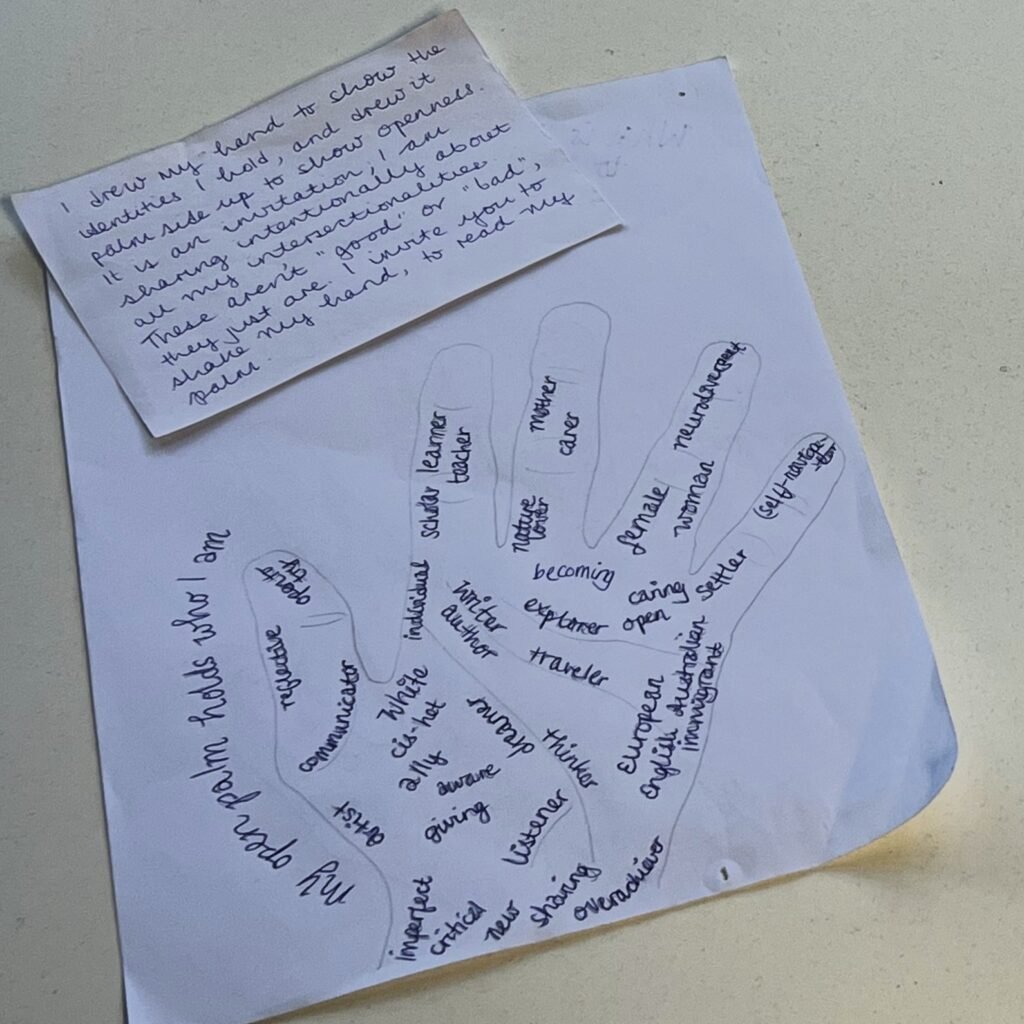 I drew my hand to show the
identities I hold, and drew it
palm side up to show openness.
It is an invitation; I am
sharing intentionally about
all my intersectionalities
These aren't "good" or "bad",
they just are. I invite you to
shake my hand, to read my
palm.
my open palm holds who I am
reflective
communicator
artist
individual
scholar learner
teacher
mother
carer
nature
lover
neurodivergent
female
woman
settler
becoming
explorer
caring
open
writer
author
traveler
European
English Australian
immigrant
White
cis-het
ally
aware
giving
dreamer
thinker
listener
sharing
overachiever
imperfect
critical
new